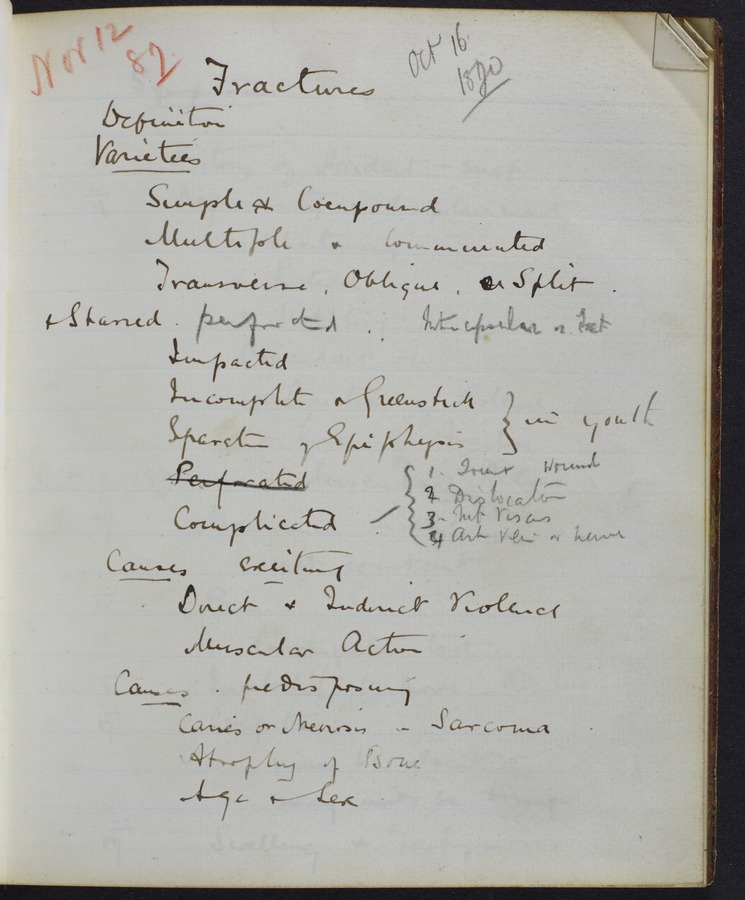 Nov 12
82
Oct 16
1880
Fractures
Definition
Varieties
Simple & Compound
Multiple & Comminuted
Transverse, Oblique, or Split.
& Starred. perforated. Intracapsular or Ext
Impacted
Incomplete or Greenstick } in youth
Separation of Epiphysis
Perforated
Complicated
1. Joint Wound
2 Dislocation
3. Int Viscus
4 Art Vein or Nerve
Causes exciting
Direct & Indirect Violence
Muscular Action
Causes. predisposing
Caries or Necrosis - Sarcoma
Atrophy of Bone
Age & Sex